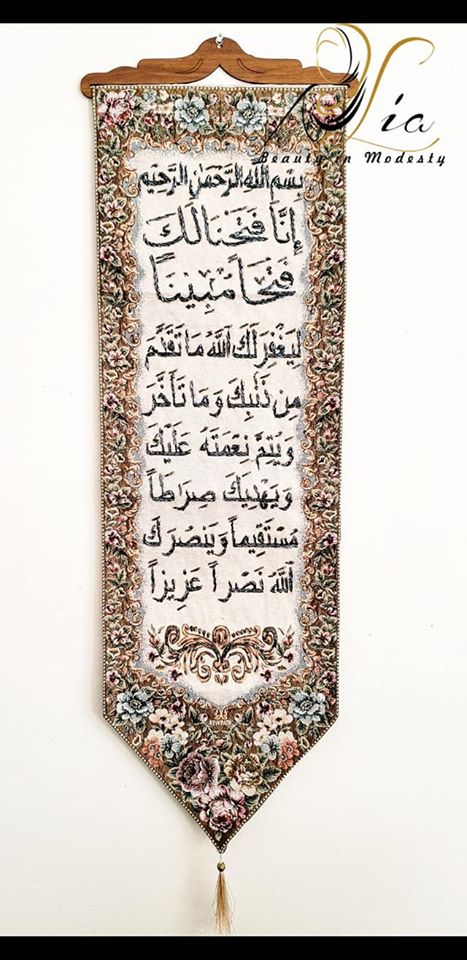 Via
Beauty in Modesty
بِسْمِ اللهِ الرَّحْمٰنِ الرَّحِيْمِ
إِنَّا فَتَحْنَا لَكَ
فَتْحَاً مُبِيْنَاً
لِيَغْفِرَ لَكَ اللَّهُ مَا تَقَدَّمَ
مِن ذَنْبِكَ وَمَا تَأَخَّرَ
وَيُتِمَّ نِعْمَتَهُ عَلَيْكَ
وَيَهْدِيَكَ صِرَاطَاً
مُسْتَقِيماً وَيَنْصُرَكَ
اللَّهُ نَصْراً عَزِيزاً